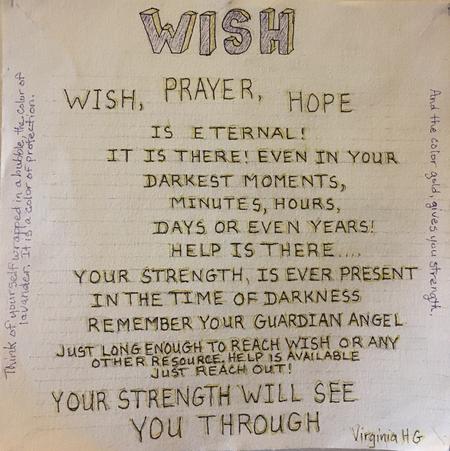 WISH
WISH, PRAYER, HOPE
IS ETERNAL!
IT IS THERE! EVEN IN YOUR
DARKEST MOMENTS,
MINUTES, HOURS,
DAYS OR EVEN YEARS!
HELP IS THERE....
YOUR STRENGTH, IS EVER PRESENT
IN THE TIME OF DARKNESS
REMEMBER YOUR GUARDIAN ANGEL
JUST LONG ENOUGH TO REACH WISH OR ANY
OTHER RESOURCE. HELP IS AVAILABLE
JUST REACH OUT!
YOUR STRENGTH WILL SEE
YOU THROUGH
Virginia H G
Think of yourself wrapped in a bubble, the color of
lavander. It is a color of protection.
And the color gold gives you strength.